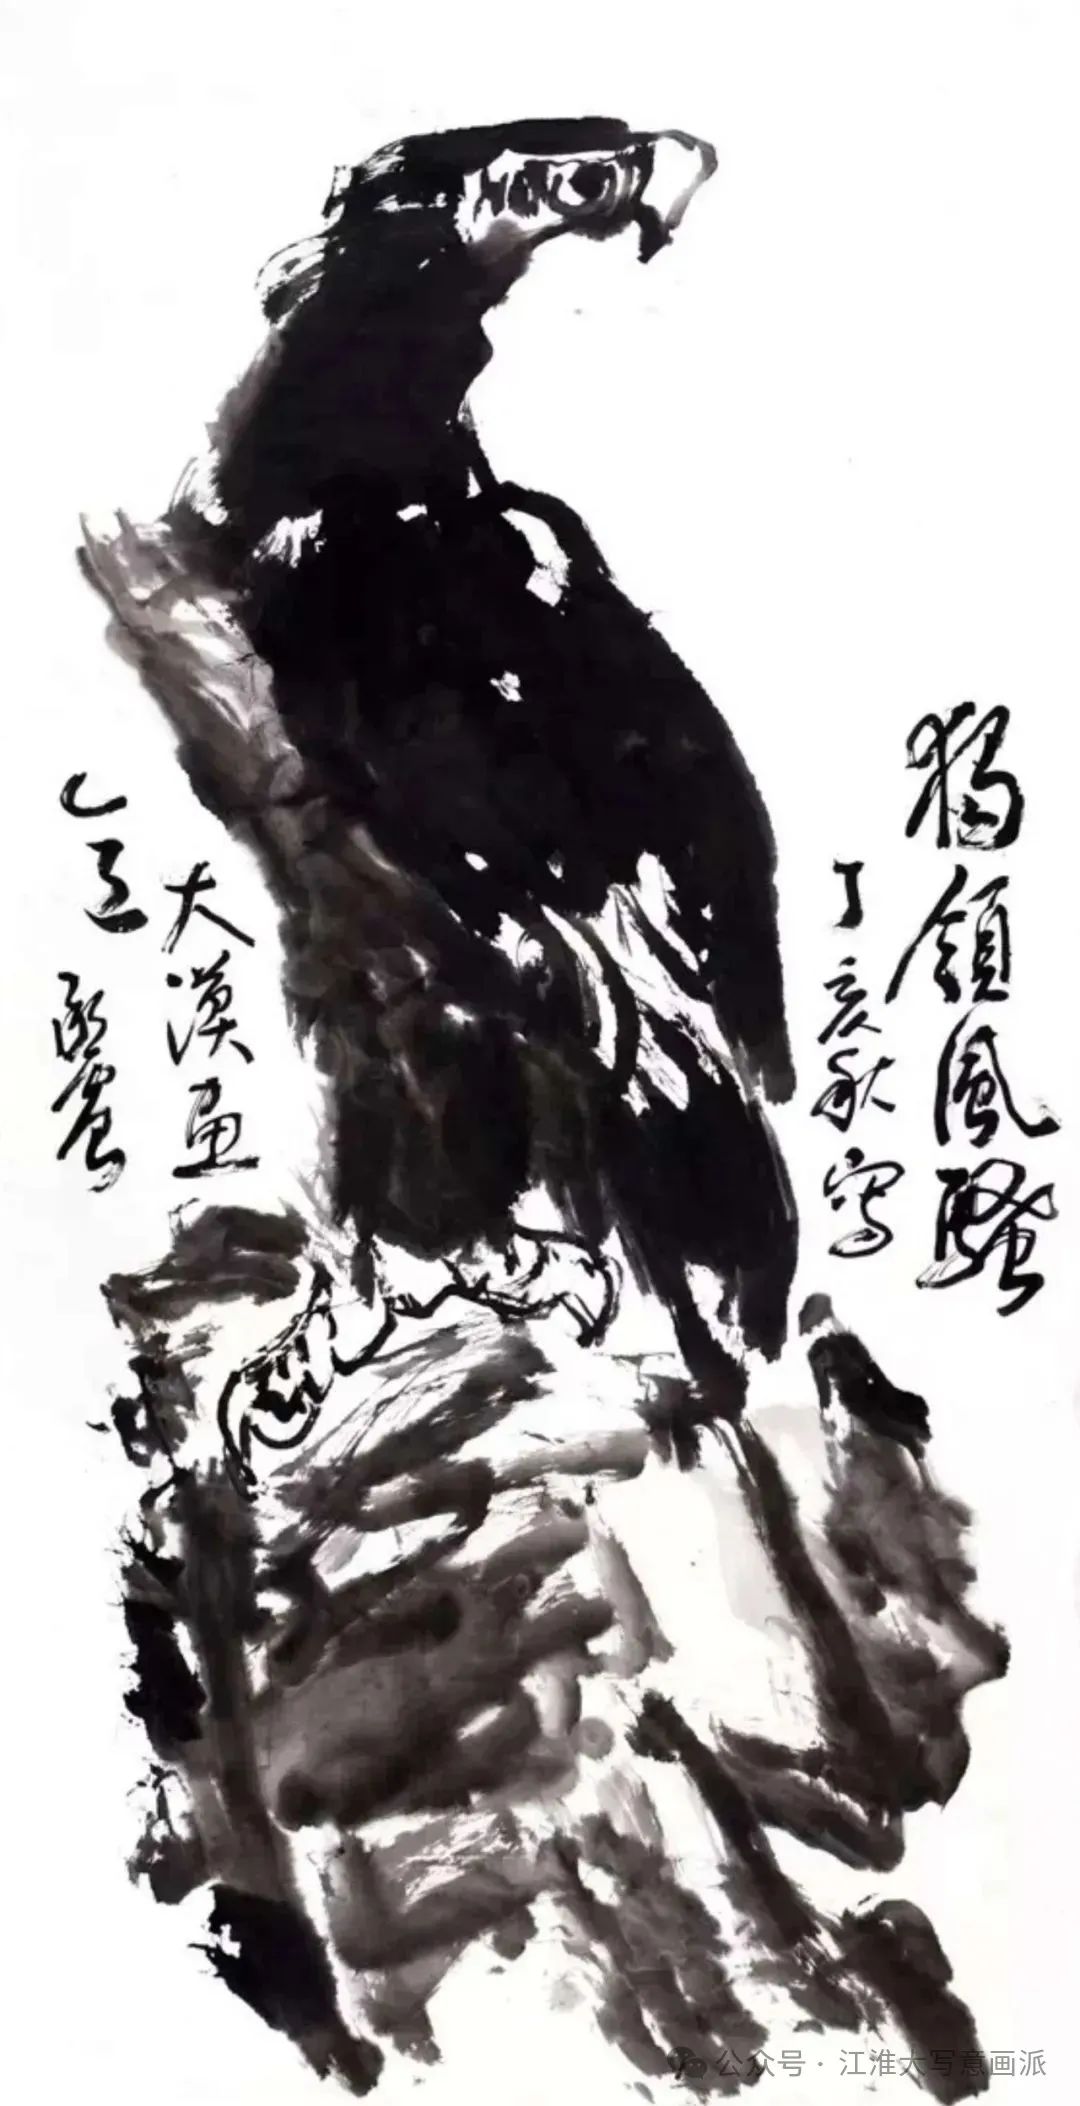 獨領風騷
丁亥秋寫
大漠画
乙
公众号·江淮大写意画派